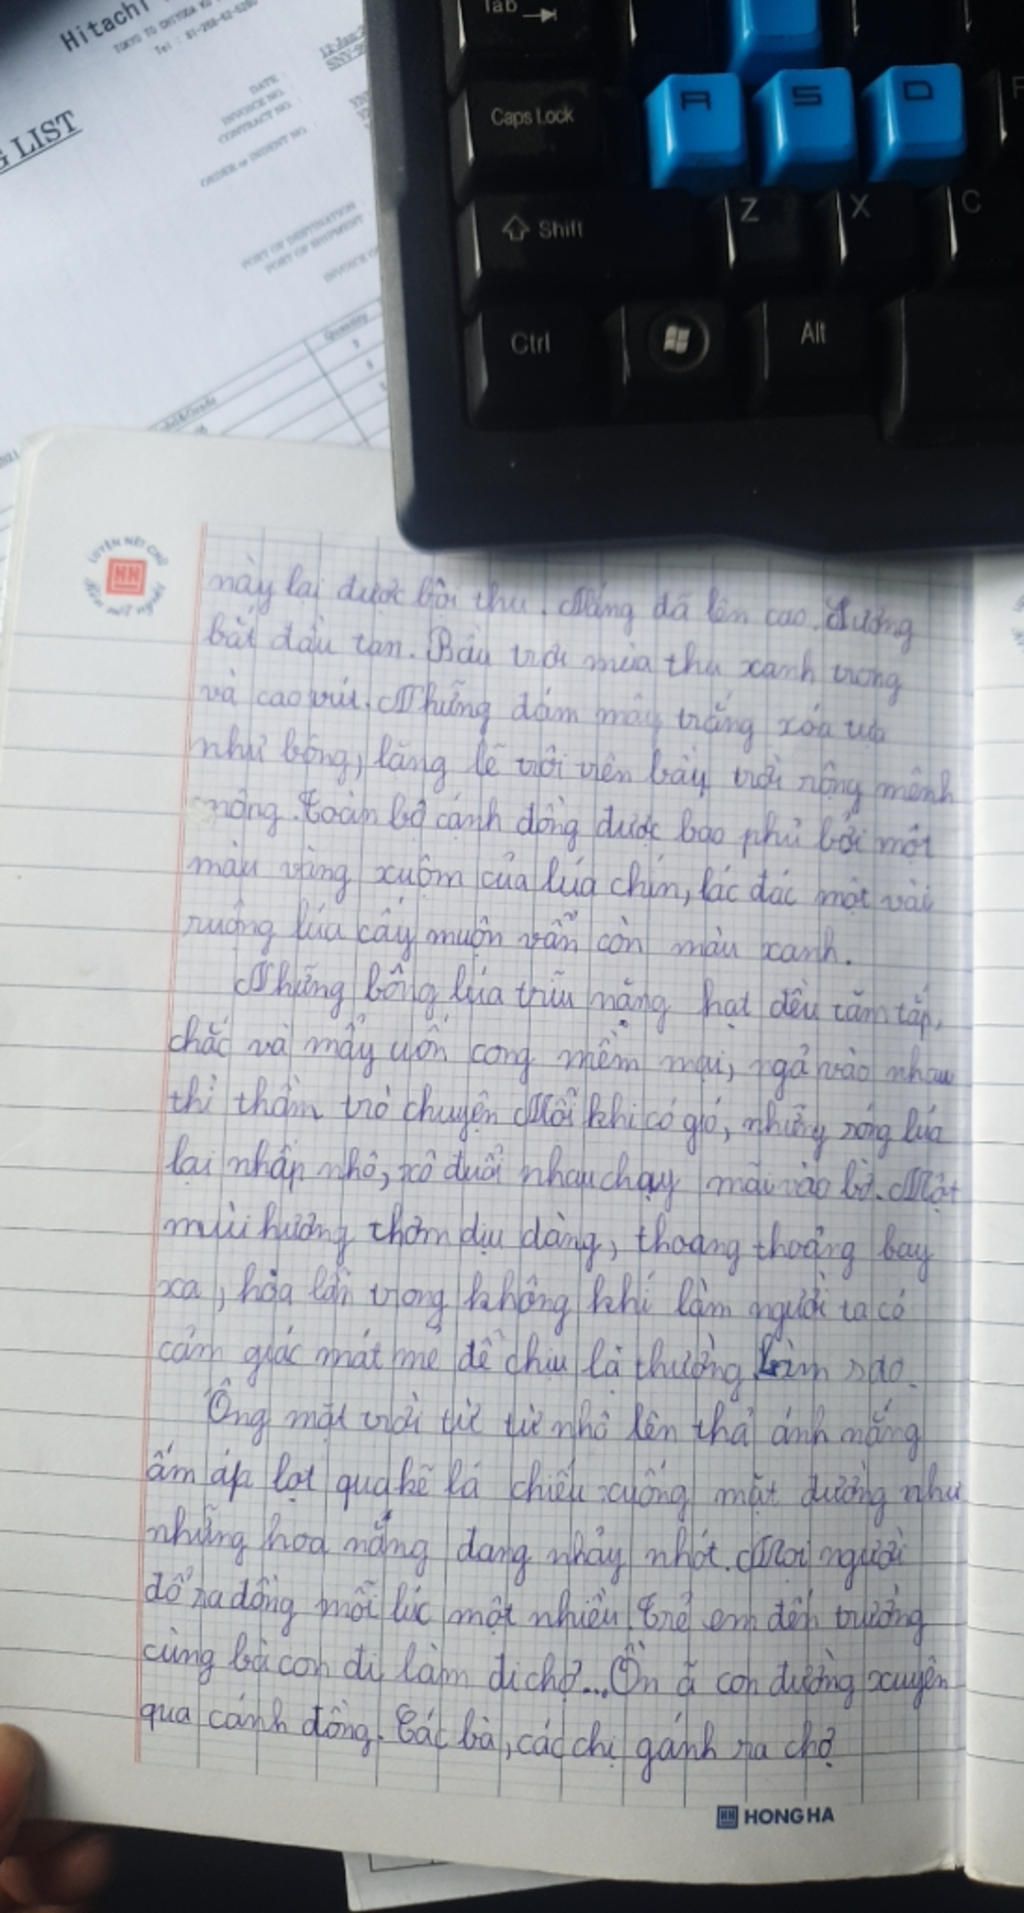 Hitachi
TOKYO TO CHIYODA KU
Tel : 81-258-62-5260
G LIST
DATE
INVOICE NO.
CONTRACT NO.
ORDER or INDENT NO.
PORT OF DESTINATION
PORT OF SHIPMENT
Quantity
Tab
Caps Lock
A S D
Shift
Z X C
Ctrl
Alt
LUYỆN NÉT CHỮ
Rèn nết người
HH
này lại được bội thu. Nắng đã lên cao. Sương
bắt đầu tan. Bầu trời mùa thu xanh trong
và cao vút. Những đám mây trắng xóa tựa
như bông, lặng lẽ trôi trên bầy trời rộng mênh
mông. Toàn bộ cánh đồng được bao phủ bởi một
màu vàng xuộm của lúa chín, lác đác một vài
ruộng lúa cấy muộn vẫn còn màu xanh.
Những bông lúa trĩu nặng hạt đều tăm tắp,
chắc và mẩy uốn cong mềm mại, ngả vào nhau
thì thầm trò chuyện Mỗi khi có gió, những sóng lúa
lại nhấp nhô, xô đuổi nhau chạy mãi vào bờ. Một
mùi hương thơm dịu dàng, thoang thoảng bay
xa, hòa lẫn trong không khí làm người ta có
cảm giác mát mẻ dễ chịu lạ thường làm sao.
Ông mặt trời từ từ nhô lên thả ánh nắng
ấm áp lọt qua kẽ lá chiếu xuống mặt đường như
những hoa nắng đang nhảy nhót. Mọi người
đổ ra đồng mỗi lúc một nhiều. Trẻ em đến trường
cùng bà con đi làm đi chợ...Ồn ã con đường xuyên
qua cánh đồng. Các bà, các chị gánh ra chợ
HONG HA